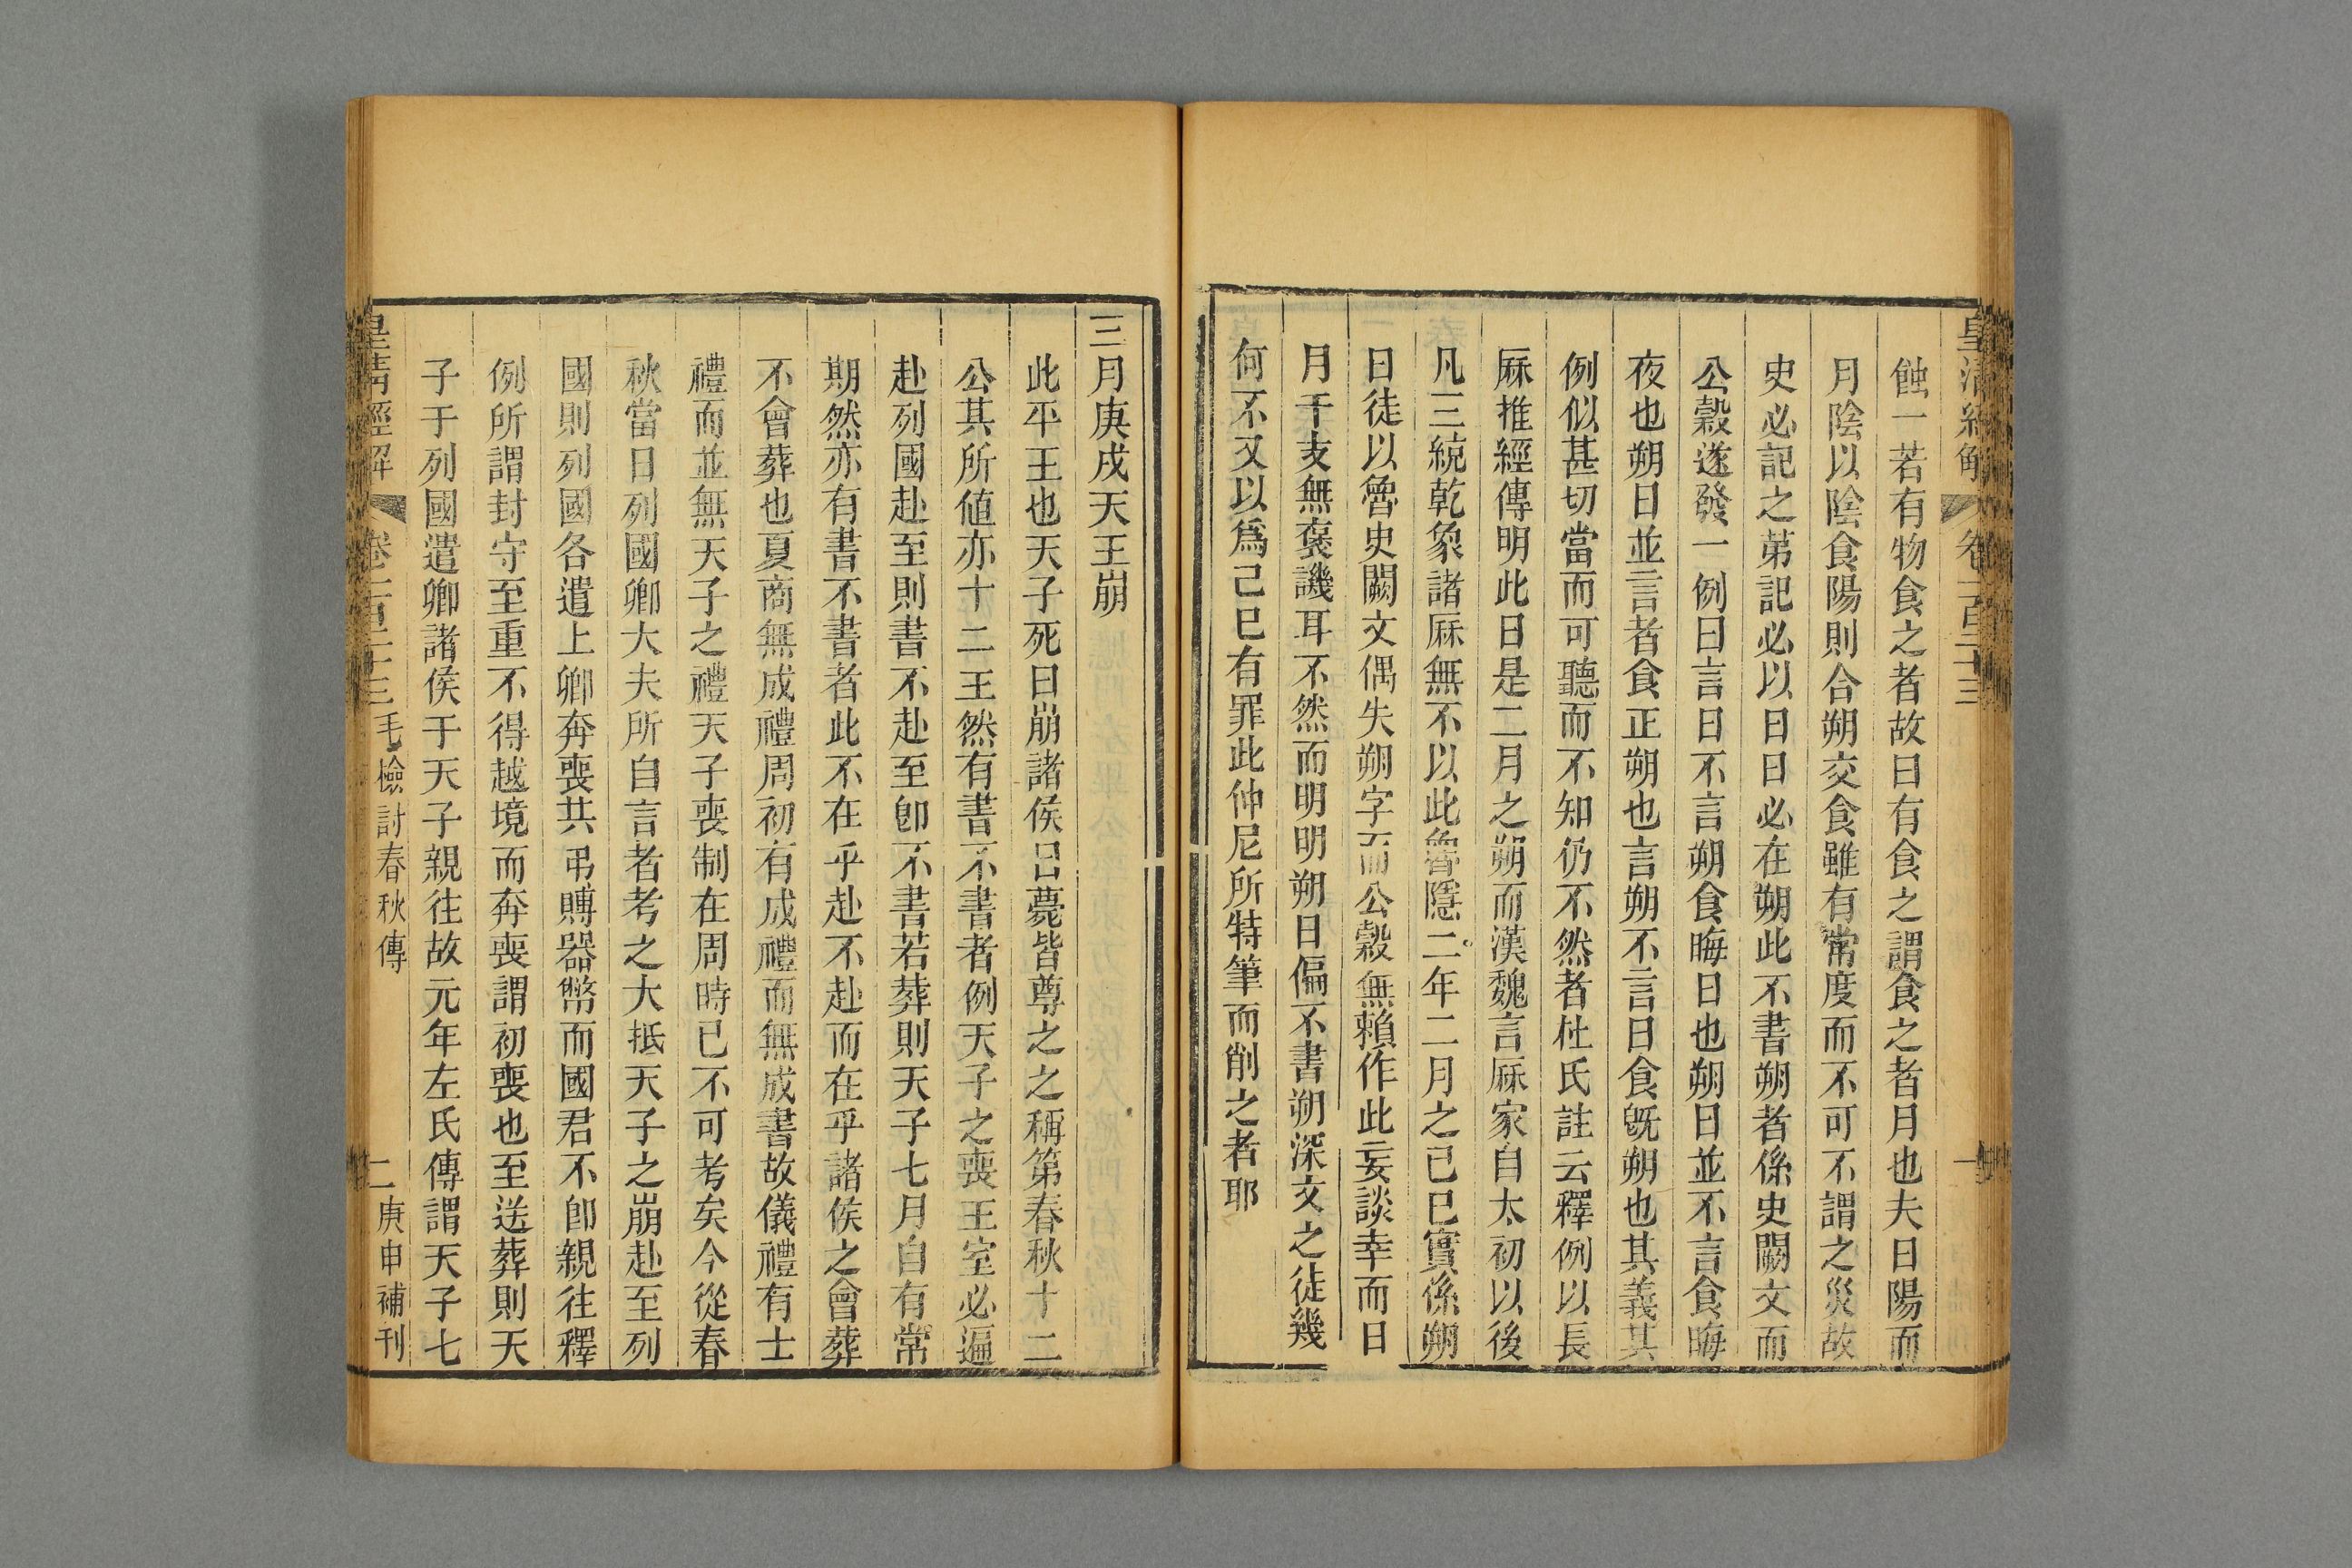 皇清經解
卷一百二十三
一
蝕一若有物食之者故曰有食之謂食之者月也夫日陽而
月陰以陰食陽則合朔交食雖有常度而不可不謂之災故
史必記之苐記必以日日必在朔此不書朔者係史闕文而
公穀遂發一例曰言日不言朔食晦日也朔日並不言食晦
夜也朔日並言者食正朔也言朔不言日食旣朔也其義其
例似甚切當而可聽而不知仍不然者杜氏註云釋例以長
厤推經傳明此日是二月之朔而漢魏言厤家自太初以後
凡三統乾象諸厤無不以此魯隱二年二月之己巳實係朔
日徒以魯史闕文偶失朔字而公穀無賴作此妄談幸而日
月干支無褒譏耳不然而明明朔日偏不書朔深文之徒幾
何不又以爲己巳有罪此仲尼所特筆而削之者耶
三月庚戌天王崩
此平王也天子死曰崩諸侯曰薨皆尊之之稱第春秋十二
公其所値亦十二王然有書不書者例天子之喪王室必遍
赴列國赴至則書不赴至卽不書若葬則天子七月自有常
期然亦有書不書者此不在乎赴不赴而在乎諸侯之會葬
不會葬也夏商無成禮周初有成禮而無成書故儀禮有士
禮而並無天子之禮天子喪制在周時已不可考矣今從春
秋當日列國卿大夫所自言者考之大抵天子之崩赴至列
國則列國各遣上卿奔喪共弔賻器幣而國君不卽親往釋
例所謂封守至重不得越境而奔喪謂初喪也至送葬則天
子于列國遣卿諸侯于天子親往故元年左氏傳謂天子七
皇清經解
卷一百二十三
毛檢討春秋傳
二
庚申補刊